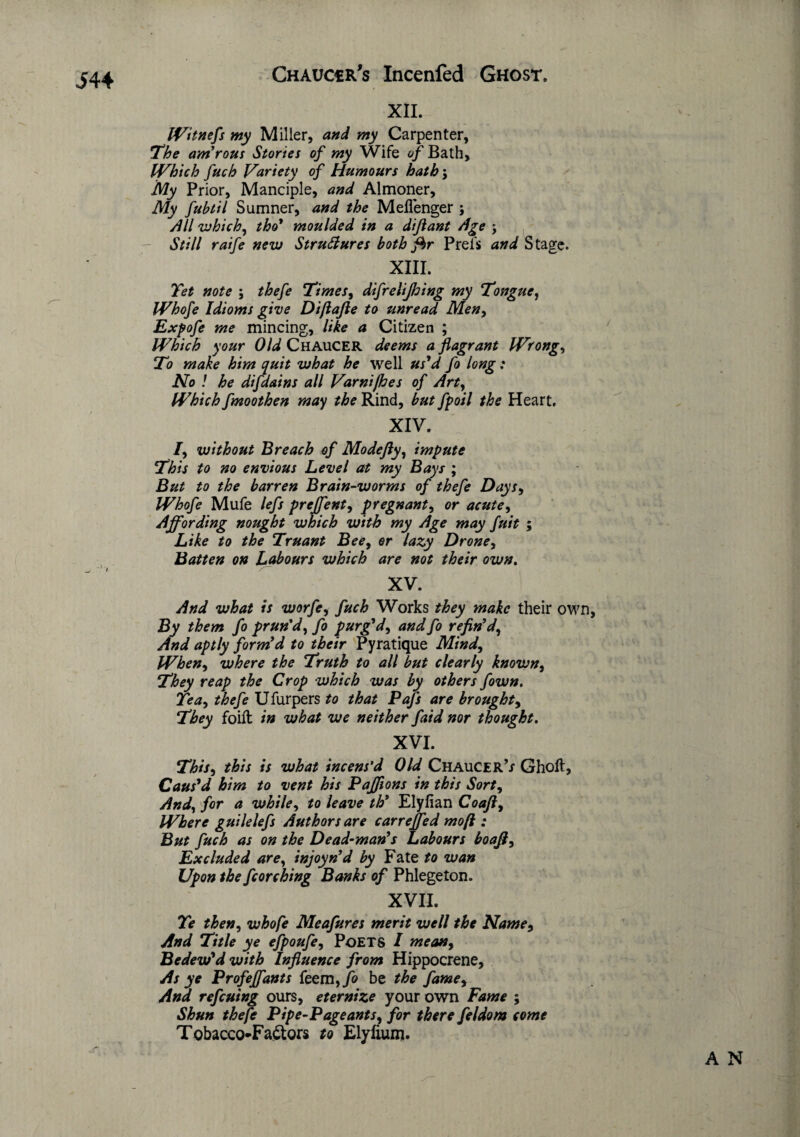 544
CHAUCER's Incenſed GHOST.
XII.
Witneſs my Miller, and my Carpenter,
The am'rous Stories of my Wife of Bath,
Which ſuch Variety of Humours hath;
My Prior, Manciple, and Almoner,
My ſubtil Sumner, and the Meſſenger;
All which, tho' moulded in a diſtant Age;
Still raiſe new Structures both for Preſs and Stage.
XIII.
Yet note; theſe Times, diſreliſhing my Tongue,
Whoſe Idioms give Diſtaſte to unread Men,
Expoſe me mincing, like a Citizen;
Which your Old CHAUCER deems a flagrant Wrong,
To make him quit what he well us'd ſo long:
No! he diſdains all Varniſhes of Art,
Which ſmoothen may the Rind, but ſpoil the Heart.
XIV.
I, without Breach of Modeſty, impute
This to no envious Level at my Bays;
But to the barren Brain-worms of theſe Days,
Whoſe Muſe leſs preſſent, pregnant, or acute,
Affording nought which with my Age may ſuit;
Like to the Truant Bee, or lazy Drone,
Batten on Labours which are not their own.
XV.
And what is worſe, ſuch Works they make their own,
By them ſo prun'd, ſo purg'd, and ſo refin'd,
And aptly form'd to their Pyratique Mind,
When, where the Truth to all but clearly known,
They reap the Crop which was by others ſown.
Yea, theſe Uſurpers to that Paſs are brought,
They foiſt in what we neither ſaid nor thought.
XVI.
This, this is what incens'd Old CHAUCER's Ghoſt,
Caus'd him to vent his Paſſions in this Sort,
And, for a while, to leave th' Elyſian Coaſt,
Where guileleſs Authors are carreſſed moſt:
But ſuch as on the Dead-man's Labours boaſt,
Excluded are, injoyn'd by Fate to wan
Upon the ſcorching Banks of Phlegeton.
XVII.
Ye then, whoſe Meaſures merit well the Name,
And Title ye eſpouſe, POETS I mean,
Bedew'd with Influence from Hippocrene,
As ye Profeſſants ſeem, ſo be the ſame,
And reſcuing ours, eternize your own Fame;
Shun theſe Pipe-Pageants, for there ſeldom come
Tobacco-Factors to Elyſium.
A N